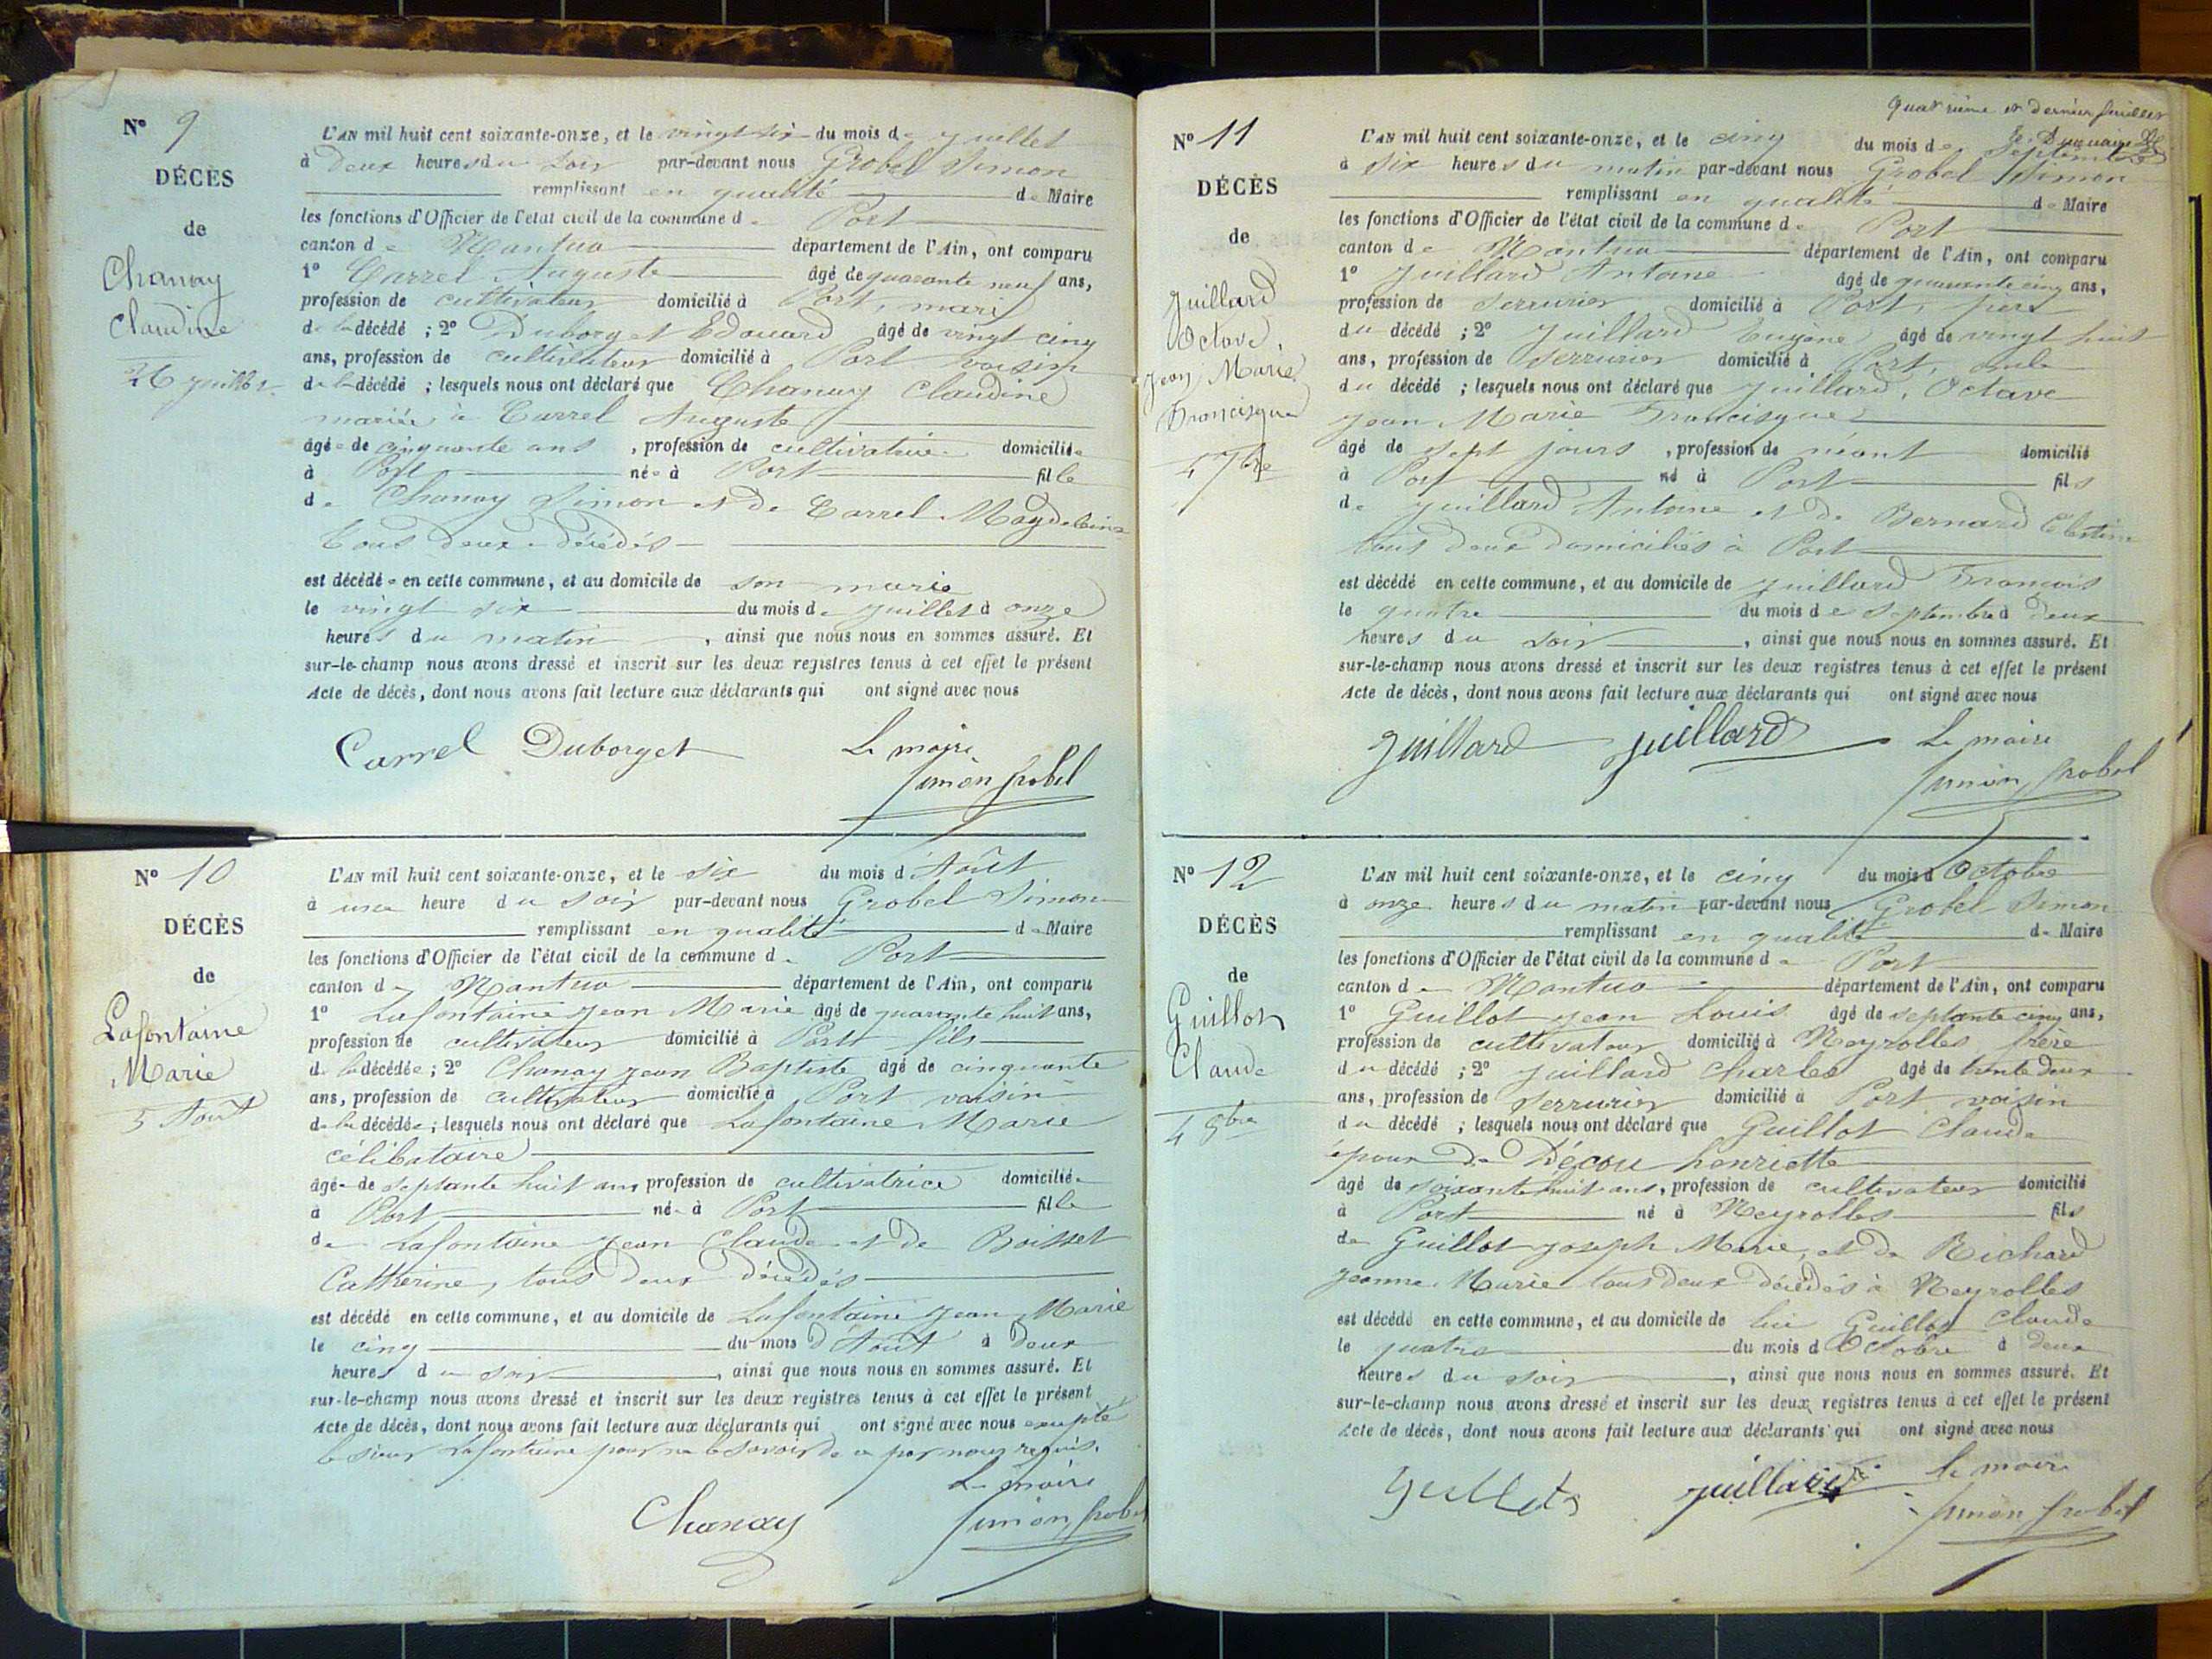 N° 9
DÉCÈS
de
Chanay
Claudine
26 juillet
L'AN mil huit cent soixante-onze, et le vingt six du mois de juillet
à Deux heures du soir par-devant nous Grobel Simon
remplissant en qualité de Maire
les fonctions d'Officier de l'état civil de la commune de Port
canton de Nantua département de l'Ain, ont comparu
1° Carrel Auguste âgé de quarante neuf ans,
profession de cultivateur domicilié à Port, mari
de la décédé ; 2° Duborget Edouard âgé de vingt cinq
ans, profession de cultivateur domicilié à Port voisin
de la décédé ; lesquels nous ont déclaré que Chanay Claudine
mariée à Carrel Auguste
âgée de cinquante ans , profession de cultivatrice domiciliée
à Port née à Port fille
de Chanay Simon et de Carrel Magdeleine
tous deux décédés
est décédée en cette commune, et au domicile de son marie
le vingt six du mois de juillet à onze
heures du matin , ainsi que nous nous en sommes assuré. Et
sur-le-champ nous avons dressé et inscrit sur les deux registres tenus à cet effet le présent
Acte de décès, dont nous avons fait lecture aux déclarants qui ont signé avec nous
Carrel Duborget Le maire
Simon Grobel
N° 10
DÉCÈS
de
Lafontaine
Marie
5 Août
L'AN mil huit cent soixante-onze, et le six du mois d'Août
à une heure du soir par-devant nous Grobel Simon
remplissant en qualité de Maire
les fonctions d'Officier de l'état civil de la commune de Port
canton de Nantua département de l'Ain, ont comparu
1° Lafontaine Jean Marie âgé de quarante huit ans,
profession de cultivateur domicilié à Port fils
de la décédée ; 2° Chanay Jean Baptiste âgé de cinquante
ans, profession de cultivateur domicilié à Port voisin
de la décédée ; lesquels nous ont déclaré que Lafontaine Marie
célibataire
âgée de septante huit ans profession de cultivatrice domiciliée
à Port née à Port fille
de Lafontaine Jean Claude et de Boisset
Catherine, tous deux décédés
est décédé en cette commune, et au domicile de Lafontaine Jean Marie
le cinq du mois d'Août à deux
heures du soir , ainsi que nous nous en sommes assuré. Et
sur-le-champ nous avons dressé et inscrit sur les deux registres tenus à cet effet le présent
Acte de décès, dont nous avons fait lecture aux déclarants qui ont signé avec nous excepté
le sieur Lafontaine pour ne le savoir de ce par nous requis.
Le maire
Chanay Simon Grobel
Quatrième et dernier feuillet
N° 11
DÉCÈS
de
Juillard
Octave,
Jean Marie
Francisque
4 7bre
L'AN mil huit cent soixante-onze, et le cinq du mois de Septembre
à six heures du matin par-devant nous Grobel Simon
remplissant en qualité de Maire
les fonctions d'Officier de l'état civil de la commune de Port
canton de Nantua département de l'Ain, ont comparu
1° Juillard Antoine âgé de quarante cinq ans,
profession de Serrurier domicilié à Port, père
du décédé ; 2° Juillard Eugène âgé de vingt huit
ans, profession de Serrurier domicilié à Port,
du décédé ; lesquels nous ont déclaré que Juillard, Octave
Jean Marie Francisque
âgé de sept jours , profession de néant domicilié
à Port né à Port fils
de Juillard Antoine et de Bernard Célestine
tous deux domiciliés à Port
est décédé en cette commune, et au domicile de Juillard François
le quatre du mois de septembre à deux
heures du soir , ainsi que nous nous en sommes assuré. Et
sur-le-champ nous avons dressé et inscrit sur les deux registres tenus à cet effet le présent
Acte de décès, dont nous avons fait lecture aux déclarants qui ont signé avec nous
Juillard Juillard Le maire
Simon Grobel
N° 12
DÉCÈS
de
Guillot
Claude
4 8bre
L'AN mil huit cent soixante-onze, et le cinq du mois d'Octobre
à onze heures du matin par-devant nous Grobel Simon
remplissant en qualité de Maire
les fonctions d'Officier de l'état civil de la commune de Port
canton de Nantua département de l'Ain, ont comparu
1° Guillot Jean Louis âgé de septante cinq ans,
profession de cultivateur domicilié à Neyrolles frère
du décédé ; 2° Juillard Charles âgé de trente deux
ans, profession de Serrurier domicilié à Port voisin
du décédé ; lesquels nous ont déclaré que Guillot Claude
époux de Décou henriette
âgé de soixante huit ans, profession de cultivateur domicilié
à Port né à Neyrolles fils
de Guillot Joseph Marie, et de Richard
Jeanne Marie tous deux décédés à Neyrolles
est décédé en cette commune, et au domicile de lui Guillot Claude
le quatre du mois d'Octobre à deux
heures du soir , ainsi que nous nous en sommes assuré. Et
sur-le-champ nous avons dressé et inscrit sur les deux registres tenus à cet effet le présent
Acte de décès, dont nous avons fait lecture aux déclarants qui ont signé avec nous
Juillard Le maire
Simon Grobel